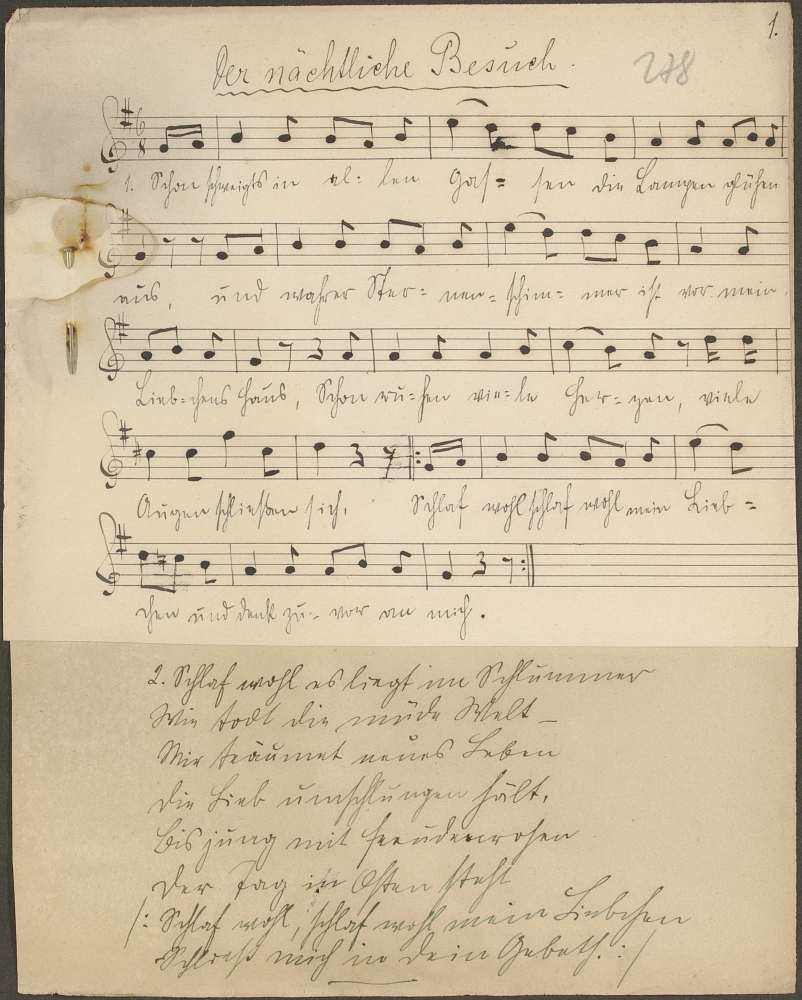 1.
Der nächtliche Besuch.
278
6
8
1. Schon schweigts in al- len Gas- sen die Lampen glühen
aus, und wahrer Ster- nen- schim- mer ist vor mein
Lieb-chens Haus, Schon ru-hen vie-le Her- zen, viele
Augen schließen sich. Schlaf wohl schlaf wohl mein Lieb-
chen und denk zu- vor an mich.
2. Schlaf wohl es liegt im Schlummer
Wie todt die müde Welt _
Mir träumet neues Leben
die Lieb umschlungen hält,
Bis jung mit Freudenrosen
Der Tag in Osten steht
/: Schlaf wohl, schlaf wohl mein Liebchen
Schließ mich in dein Gebeth. :/